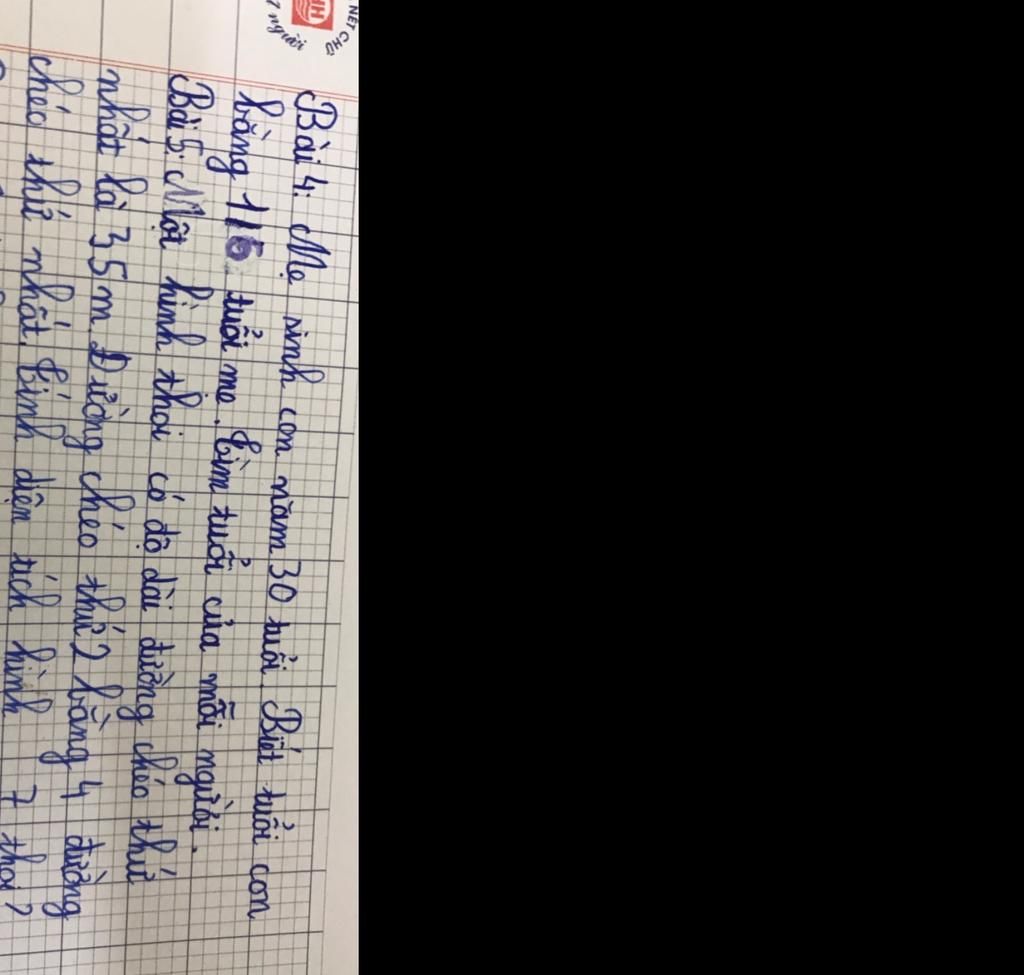 NÉT CHỮ
người
Bài 4: Mẹ sinh con năm 30 tuổi. Biết tuổi con
bằng 1/6 tuổi mẹ. Tìm tuổi của mỗi người.
Bài 5: Một hình thoi có độ dài đường chéo thứ
nhất là 35m. Đường chéo thứ 2 bằng 4 đường
chéo thứ nhất. Tính diện tích hình 7 thoi?